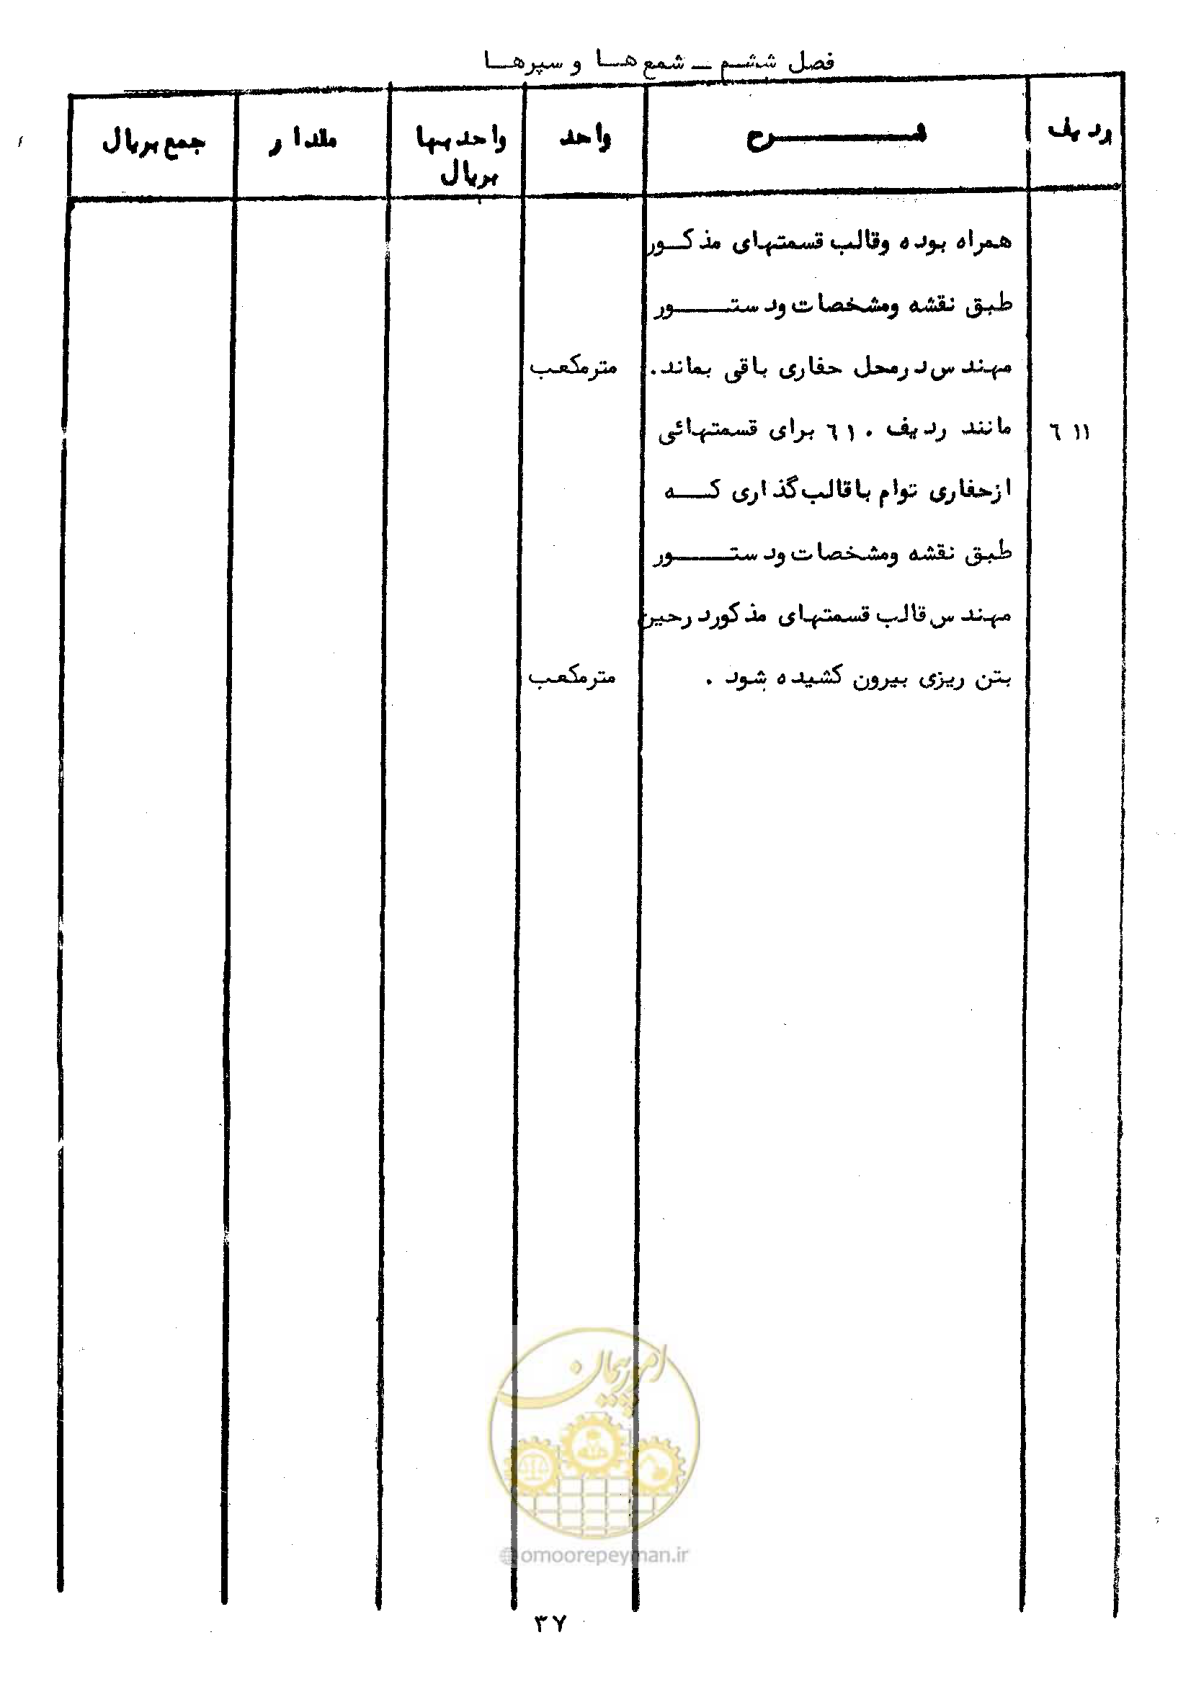 فصل ششم ــ شمع هـــا و سپرهـــا
ردیف شـــــــرح واحد واحد بها بریال مقدار جمع بریال
همراه بوده وقالب قسمتهای مذکـــور
طبق نقشه ومشخصات ودستـــــــور
مهندس درمحل حفاری باقی بماند. مترمکعب
٦١١ مانند ردیف ٦١٠ برای قسمتهائی
ازحفاری توام با قالب گذاری کـــه
طبق نقشه ومشخصات ودستـــــــور
مهندس قالب قسمتهای مذکور درحین
بتن ریزی بیرون کشیده شود . مترمکعب
امور پیمان
omoorepeyman.ir
٣٧